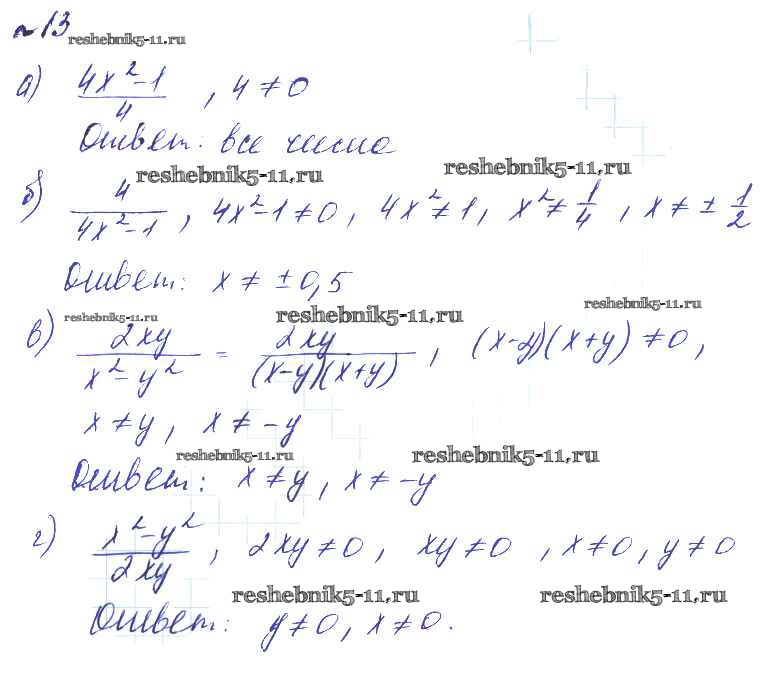 №13
reshebnik5-11.ru
а) (4x²-1)/4 , 4 ≠ 0
Ответ: все числа
reshebnik5-11.ru reshebnik5-11.ru
б) 4/(4x²-1) , 4x²-1 ≠ 0, 4x² ≠ 1, x² ≠ 1/4 , x ≠ ± 1/2
Ответ: x ≠ ±0,5
reshebnik5-11.ru reshebnik5-11.ru reshebnik5-11.ru
в) 2xy/(x²-y²) = 2xy/((x-y)(x+y)) , (x-y)(x+y) ≠ 0,
x ≠ y, x ≠ -y
reshebnik5-11.ru reshebnik5-11.ru
Ответ: x ≠ y, x ≠ -y
г) (x²-y²)/2xy , 2xy ≠ 0, xy ≠ 0 , x ≠ 0, y ≠ 0
reshebnik5-11.ru reshebnik5-11.ru
Ответ: y ≠ 0, x ≠ 0.